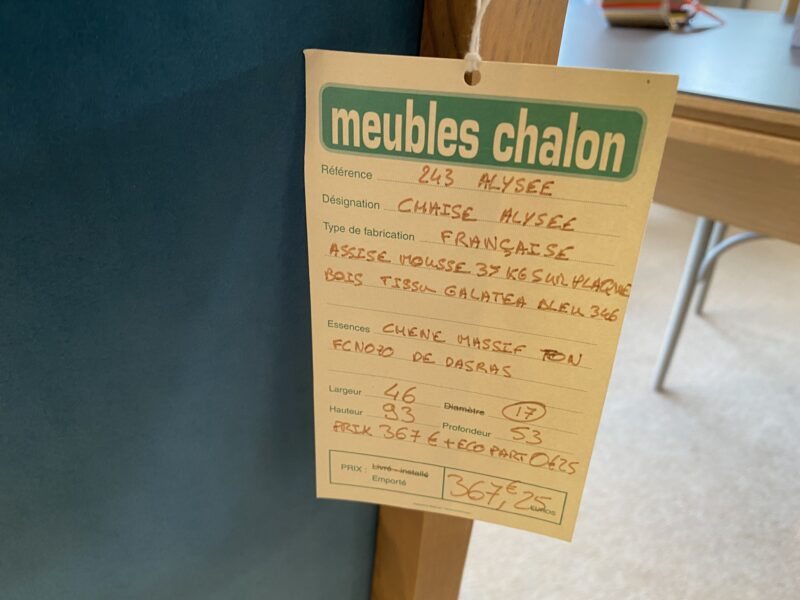 meubles chalon
Référence 243 ALYSEE
Désignation CHAISE ALYSEE
Type de fabrication FRANÇAISE
ASSISE MOUSSE 37 KG SUR PLAQUE
BOIS TISSU GALATEA BLEU 346
Essences CHENE MASSIF TON
DE DASRAS
Largeur 46 Diamètre 17
Hauteur 93 Profondeur 53
PRIX 367 € + ECO PART 0€25
PRIX : Livré - installé
Emporté
367,€25 EUROS